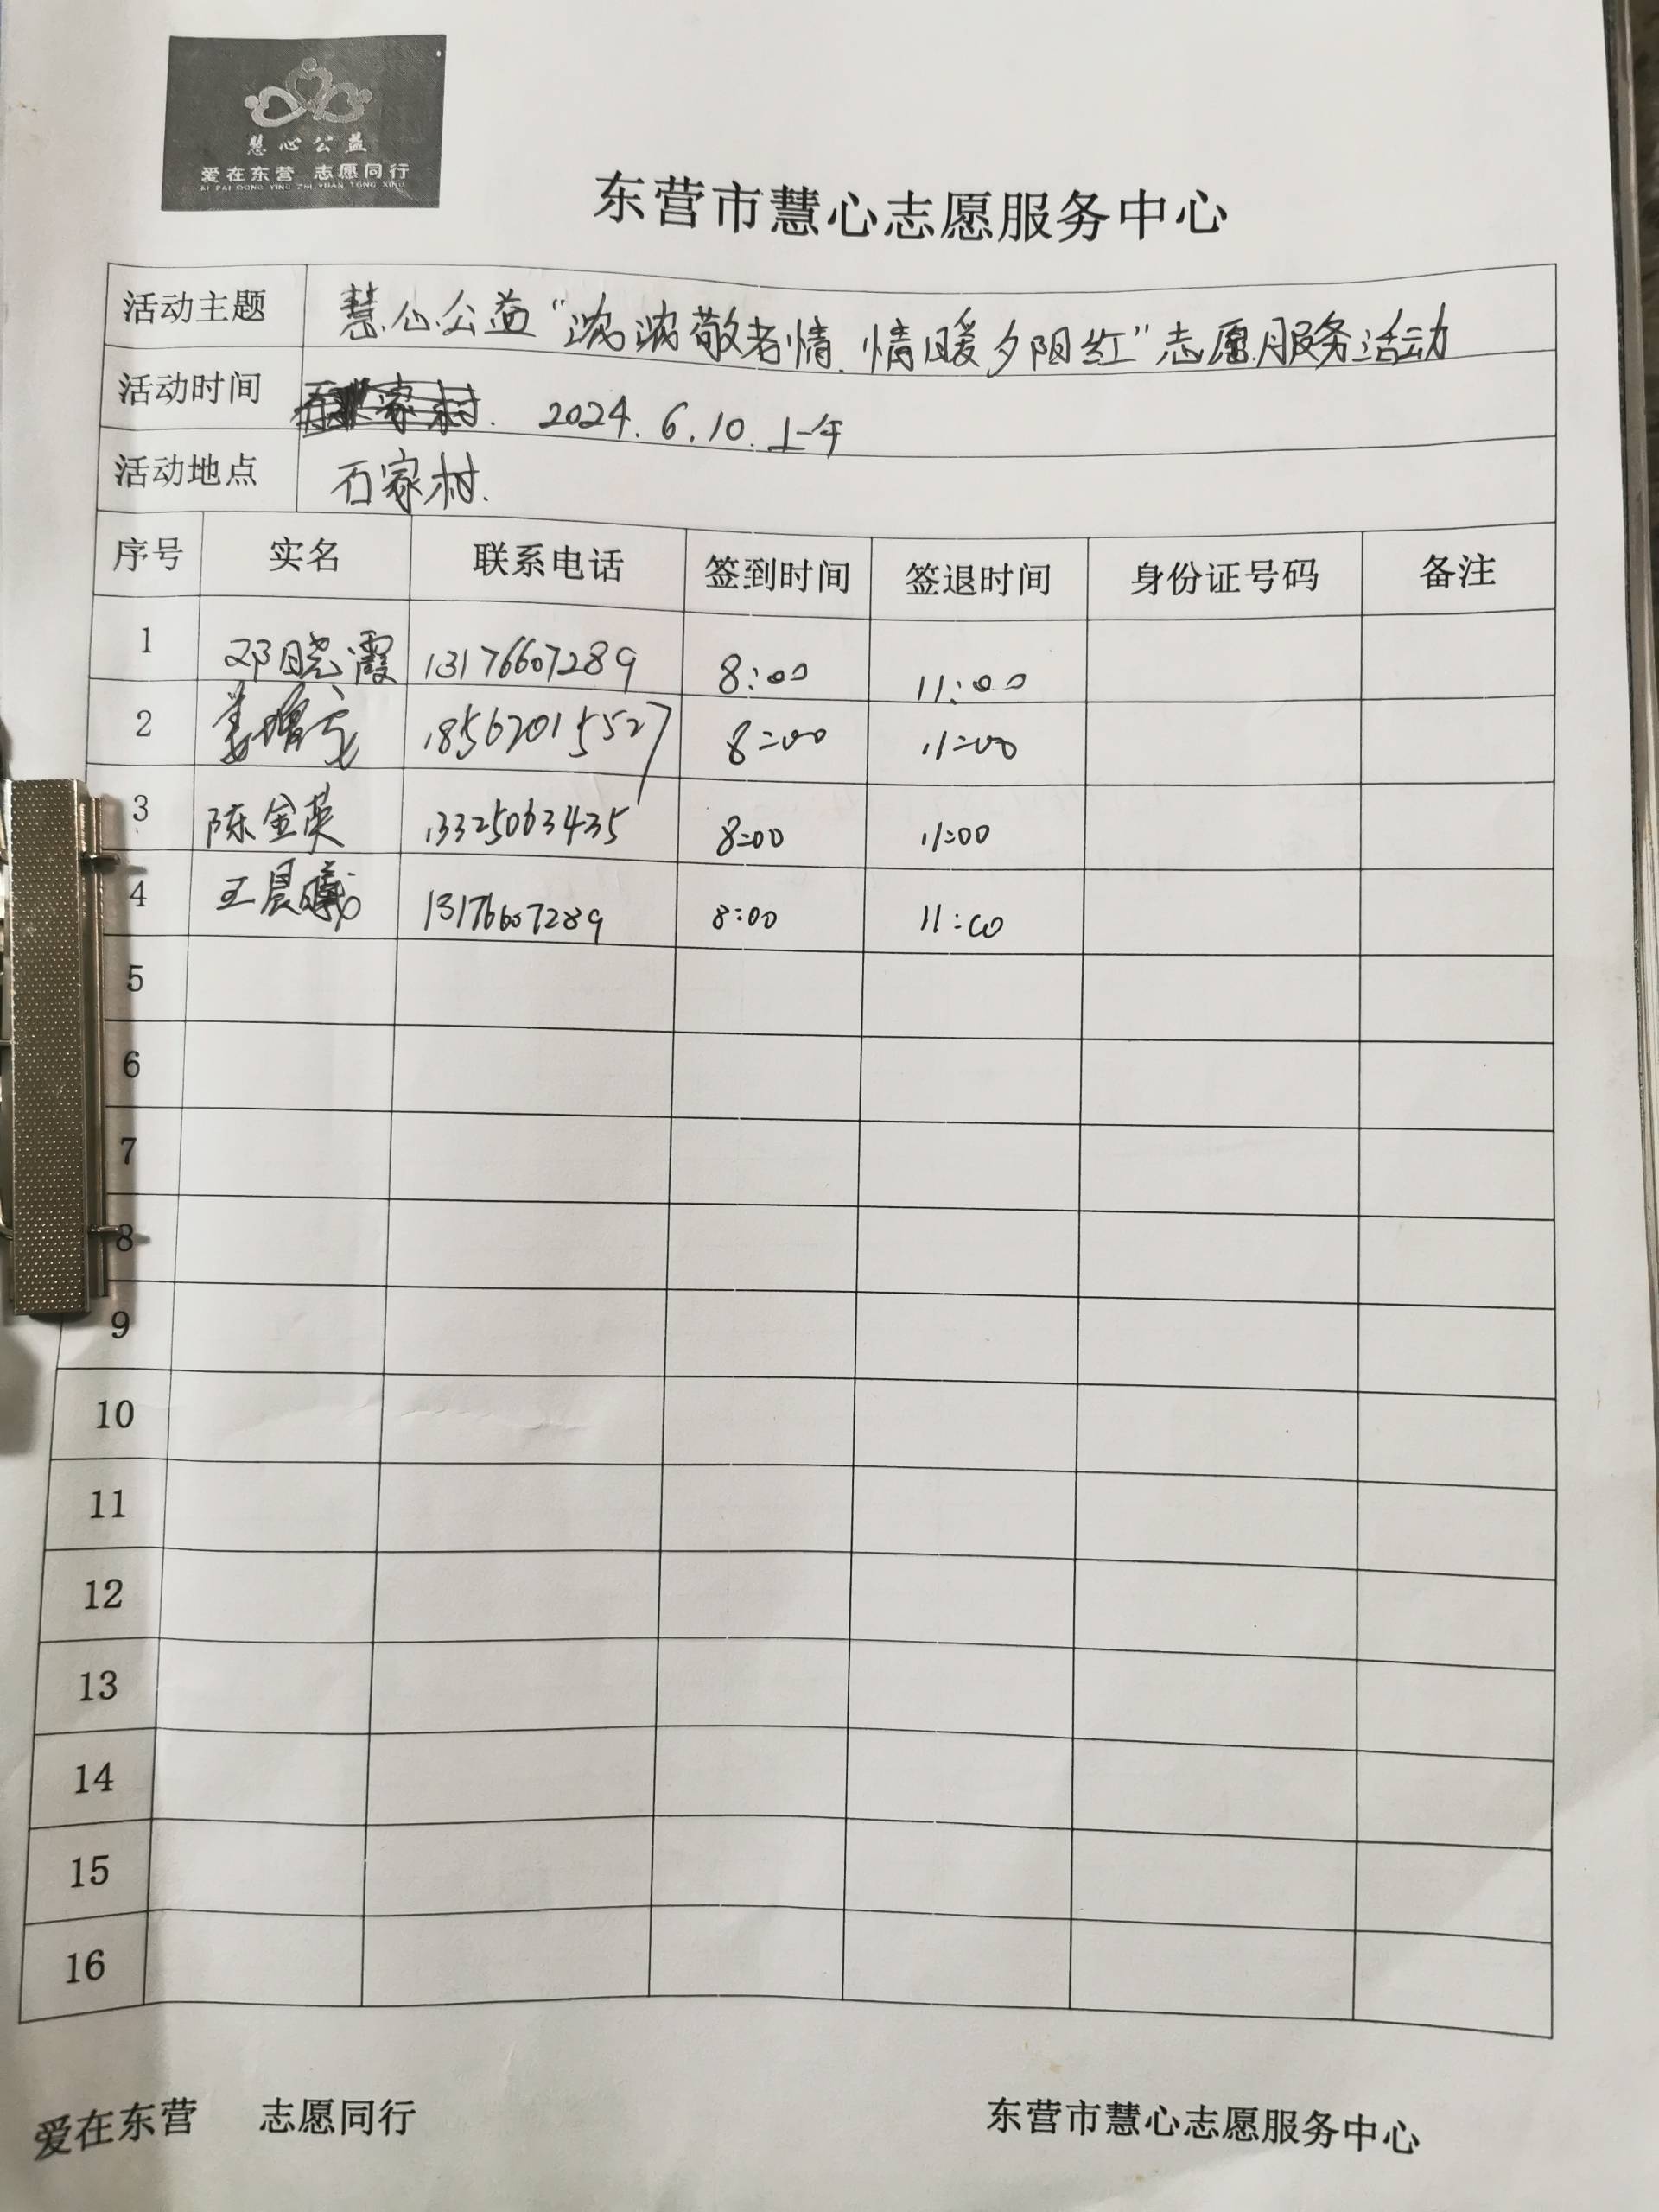 慧心公益
爱在东营 志愿同行
AI ZAI DONG YING ZHI YUAN TONG XING
东营市慧心志愿服务中心
活动主题 慧心公益“浓浓敬老情.情暖夕阳红”志愿服务活动
活动时间 2024.6.10.上午
活动地点 石家村.
序号 实名 联系电话 签到时间 签退时间 身份证号码 备注
1 邓晓霞 13176607289 8:00 11:00
2 18562015527 8:00 11:00
3 陈金英 13325063435 8:00 11:00
4 王晨曦 13176607289 8:00 11:00
5
6
7
8
9
10
11
12
13
14
15
16
爱在东营 志愿同行 东营市慧心志愿服务中心